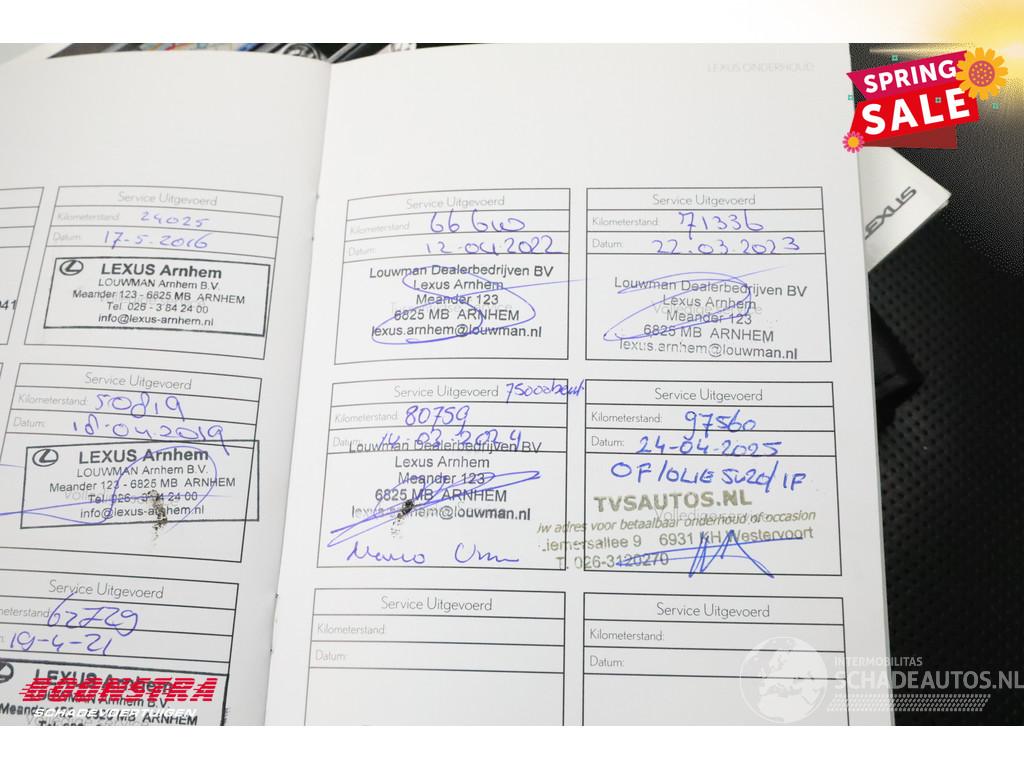 LEXUS ONDERHOUD
SPRING
SALE
LEXUS
Service Uitgevoerd
Kilometerstand: 24025
Datum: 17-5-2016
LEXUS Arnhem
LOUWMAN Arnhem B.V.
Meander 123 - 6825 MB ARNHEM
Tel. 026 - 3 84 24 00
info@lexus-arnhem.nl
041
Service Uitgevoerd
Kilometerstand: 50819
Datum: 18-04-2019
LEXUS Arnhem
LOUWMAN Arnhem B.V.
Meander 123 - 6825 MB ARNHEM
Tel. 026 - 3 84 24 00
info@lexus-arnhem.nl
Service Uitgevoerd
meterstand: 62729
19-4-21
LEXUS Arnhem
LOUWMAN Arnhem B.V.
Meander 123 - 6825 MB ARNHEM
Service Uitgevoerd
Kilometerstand: 66610
Datum: 12-04-2022
Louwman Dealerbedrijven BV
Lexus Arnhem
Meander 123
6825 MB ARNHEM
lexus.arnhem@louwman.nl
Service Uitgevoerd
Kilometerstand: 71336
Datum: 22-03-2023
Louwman Dealerbedrijven BV
Lexus Arnhem
Meander 123
6825 MB ARNHEM
lexus.arnhem@louwman.nl
Service Uitgevoerd 75000beurt
Kilometerstand: 80759
Datum: 14-03-2024
Louwman Dealerbedrijven BV
Lexus Arnhem
Meander 123
6825 MB ARNHEM
lexus.arnhem@louwman.nl
Service Uitgevoerd
Kilometerstand: 97560
Datum: 24-04-2025
OF/OLIE 5w20/IF
TVSAUTOS.NL
Uw adres voor betaalbaar onderhoud of occasion
Liemersallee 9 6931 KH Westervoort
T. 026-3120270
Service Uitgevoerd
Kilometerstand:
Datum:
Service Uitgevoerd
Kilometerstand:
Datum:
BOONSTRA
SCHADEVOERTUIGEN
INTERMOBILITAS
SCHADEAUTOS.NL